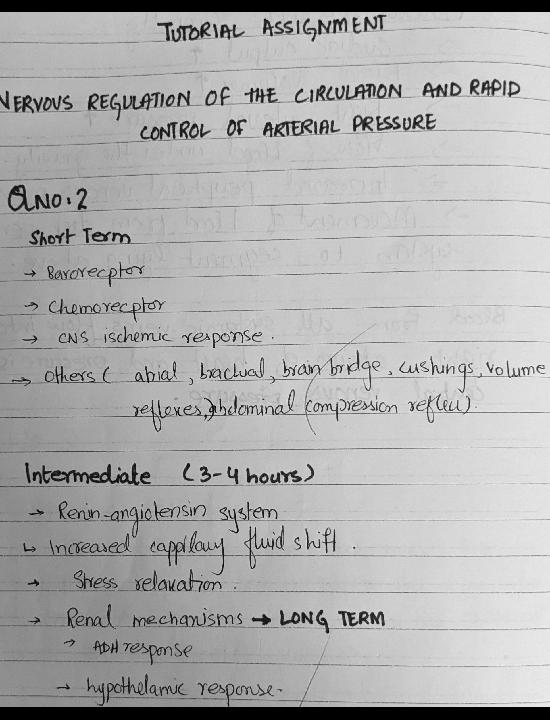 TUTORIAL ASSIGNMENT
NERVOUS REGULATION OF THE CIRCULATION AND RAPID
CONTROL OF ARTERIAL PRESSURE
QNO.2
Short Term
→ Barorecptor
→ Chemorecptor
→ CNS ischemic response.
→ Others ( atrial, bractual, bran bridge, cushings, volume
reflexes, abdominal compression reflex).
Intermediate (3-4 hours)
→ Renin-angiotensin system
↳ Increased capillary fluid shift.
→ Stress relaxation.
→ Renal mechanisms → LONG TERM
→ ADH response
→ hypothelamic response.